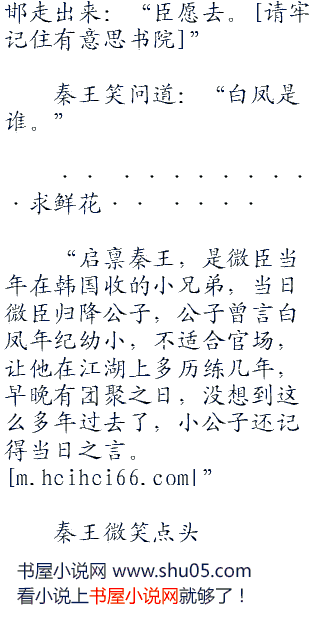 邯走出来：“臣愿去。[请牢
记住有意思书院]”
秦王笑问道：“白凤是
谁。”
·· ·········
·求鲜花·· ·····
“启禀秦王，是微臣当
年在韩国收的小兄弟，当日
微臣归降公子，公子曾言白
凤年纪幼小，不适合官场，
让他在江湖上多历练几年，
早晚有团聚之日，没想到这
么多年过去了，小公子还记
得当日之言。
[m.hcihci66.com|”
秦王微笑点头
书屋小说网 www.shu05.com
看小说上书屋小说网就够了！